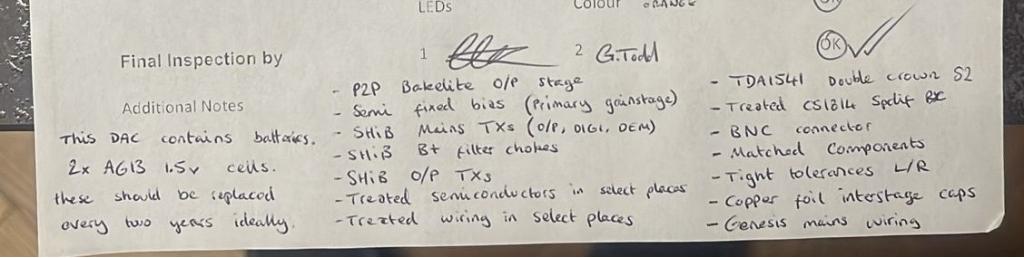 LEDs
Colour ORANGE
OK
Final Inspection by 1 2 G.Todd OK
Additional Notes
This DAC contains batteries.
2x AG13 1.5v cells.
these should be replaced
every two years ideally.
- P2P Bakelite O/P stage
- Semi fixed bias (Primary gainstage)
- SHiB Mains TXs (O/P, DIGI, DEM)
- SHiB B+ filter chokes
- SHiB O/P TXs
- Treated semiconductors in select places
- Treated wiring in select places
- TDA1541 Double crown S2
- Treated CS1814 Spdif
- BNC connector
- Matched Components
- Tight tolerances L/R
- Copper foil interstage caps
- Genesis mains wiring